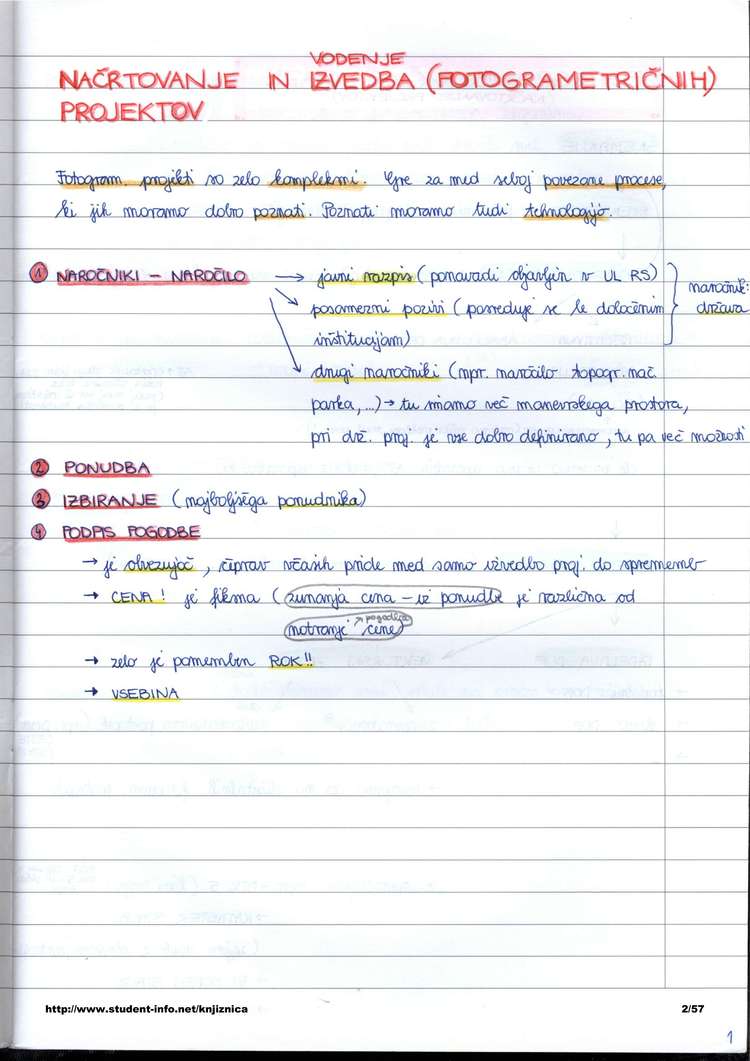 VODENJE
NAČRTOVANJE IN IZVEDBA (FOTOGRAMETRIČNIH)
PROJEKTOV
Fotogram. projekti so zelo kompleksni. Gre za med seboj povezane procese,
ki jih moramo dobro poznati. Poznati moramo tudi tehnologijo.
1 NAROČNIKI – NAROČILO → javni razpis (ponavadi objavljen v UL RS)
naročnik:
država
posamezni pozivi (posreduje se le določenim
institucijam)
drugi naročniki (npr. naročilo topogr. nač.
parka,...) → tu imamo več manevrskega prostora,
pri drž. proj. je vse dobro definirano, tu pa več možnosti
2 PONUDBA
3 IZBIRANJE (najboljšega ponudnika)
4 PODPIS POGODBE
→ je obvezujoč, čeprav včasih pride med samo izvedbo proj. do sprememb
→ CENA! je fiksna (zunanja cena – iz ponudbe je različna od
notranje cene)
↗ pogodba
→ zelo je pomemben ROK!!
→ VSEBINA
http://www.student-info.net/knjiznica 2/57
1